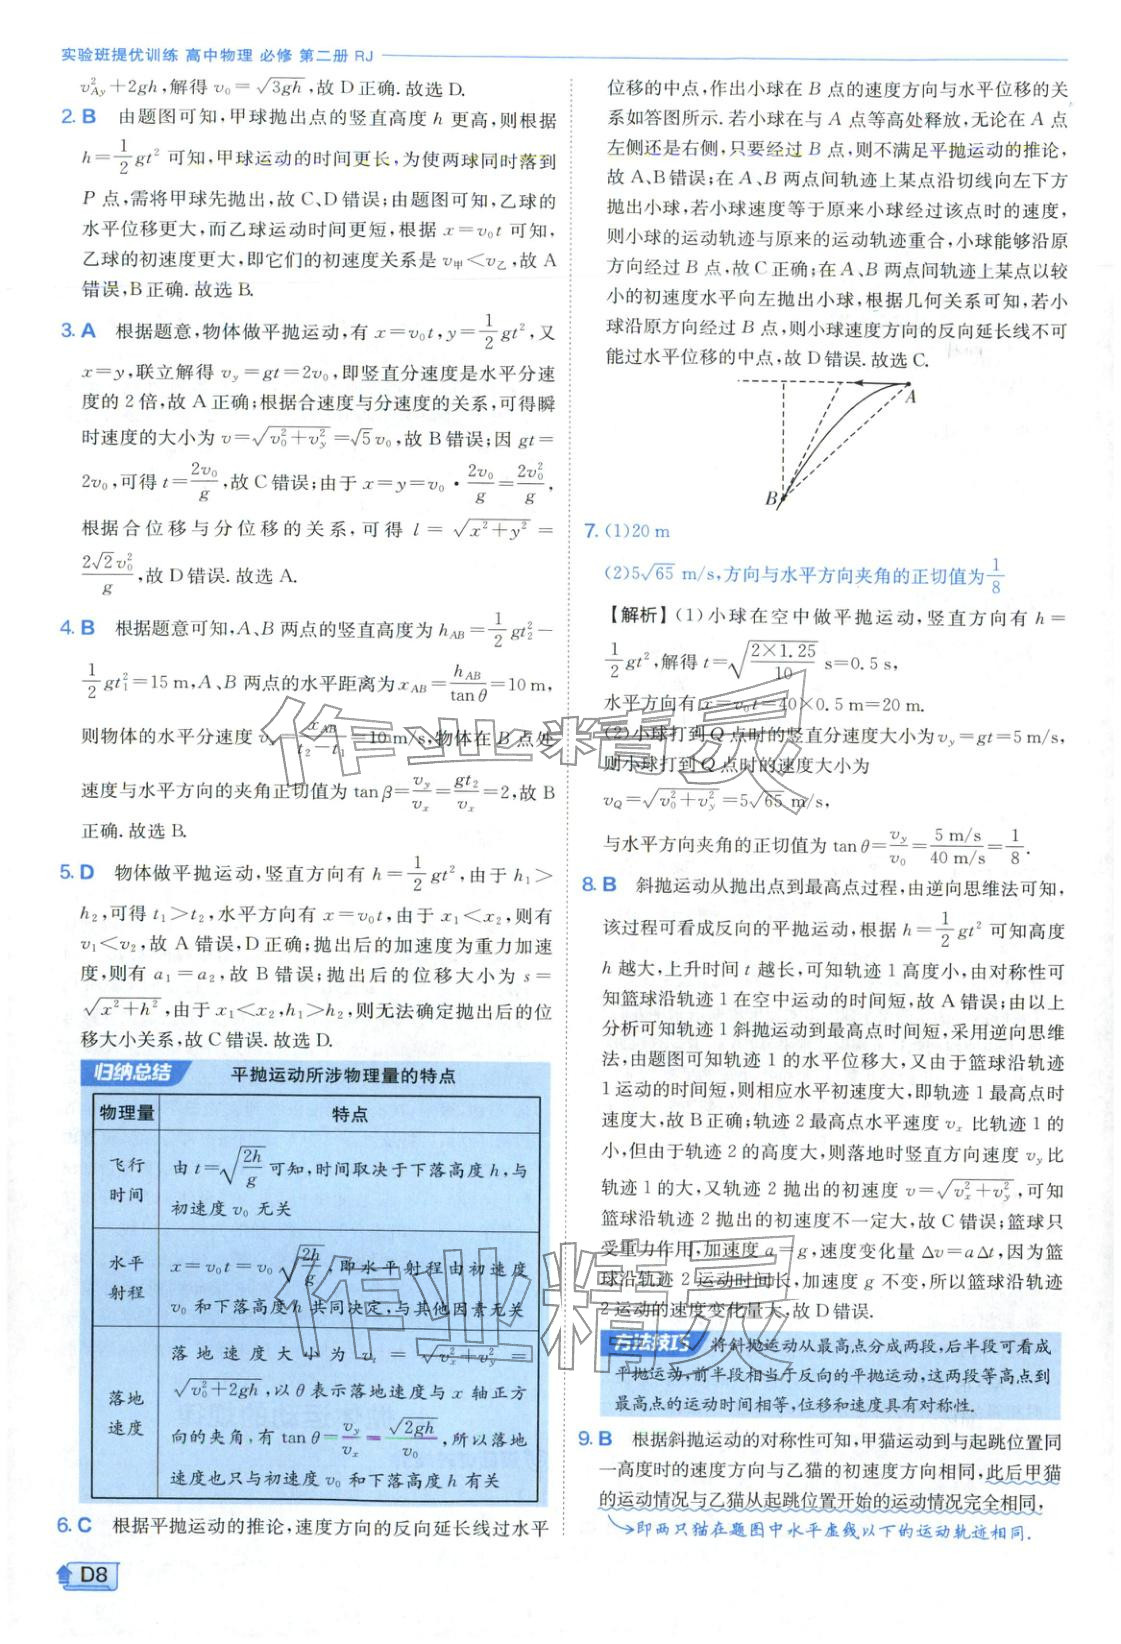 实验班提优训练 高中物理 必修 第二册 RJ
v²_{Ay}+2gh,解得 v₀=√(3gh),故 D 正确.故选 D.
2. B 由题图可知,甲球抛出点的竖直高度 h 更高,则根据
h=1/2 gt² 可知,甲球运动的时间更长,为使两球同时落到
P 点,需将甲球先抛出,故 C、D 错误;由题图可知,乙球的
水平位移更大,而乙球运动时间更短,根据 x=v₀t 可知,
乙球的初速度更大,即它们的初速度关系是 v甲<v乙,故 A
错误,B 正确.故选 B.
3. A 根据题意,物体做平抛运动,有 x=v₀t,y=1/2 gt²,又
x=y,联立解得 v_y=gt=2v₀,即竖直分速度是水平分速
度的 2 倍,故 A 正确;根据合速度与分速度的关系,可得瞬
时速度的大小为 v=√(v₀²+v_y²)=√5 v₀,故 B 错误;因 gt=
2v₀,可得 t=2v₀/g,故 C 错误;由于 x=y=v₀·2v₀/g=2v₀²/g,
根据合位移与分位移的关系,可得 l=√(x²+y²)=
2√2v₀²/g,故 D 错误.故选 A.
4. B 根据题意可知,A、B 两点的竖直高度为 h_{AB}=1/2 gt₂²−
1/2 gt₁²=15 m,A、B 两点的水平距离为 x_{AB}=h_{AB}/tanθ=10 m,
则物体的水平分速度 v_x=x_{AB}/(t₂−t₁)=10 m/s,物体在 B 点处
速度与水平方向的夹角正切值为 tanβ=v_y/v_x=gt₂/v_x=2,故 B
正确.故选 B.
5. D 物体做平抛运动,竖直方向有 h=1/2 gt²,由于 h₁>
h₂,可得 t₁>t₂,水平方向有 x=v₀t,由于 x₁<x₂,则有
v₁<v₂,故 A 错误,D 正确;抛出后的加速度为重力加速
度,则有 a₁=a₂,故 B 错误;抛出后的位移大小为 s=
√(x²+h²),由于 x₁<x₂,h₁>h₂,则无法确定抛出后的位
移大小关系,故 C 错误.故选 D.
归纳总结 平抛运动所涉物理量的特点
物理量 特点
飞行
时间
由 t=√(2h/g) 可知,时间取决于下落高度 h,与
初速度 v₀ 无关
水平
射程
x=v₀t=v₀√(2h/g),即水平射程由初速度
v₀ 和下落高度 h 共同决定,与其他因素无关
落地
速度
落地速度大小为 v=√(v_x²+v_y²)=
√(v₀²+2gh),以 θ 表示落地速度与 x 轴正方
向的夹角,有 tanθ=v_y/v_x=√(2gh)/v₀,所以落地
速度也只与初速度 v₀ 和下落高度 h 有关
6. C 根据平抛运动的推论,速度方向的反向延长线过水平
D8
位移的中点,作出小球在 B 点的速度方向与水平位移的关
系如答图所示.若小球在与 A 点等高处释放,无论在 A 点
左侧还是右侧,只要经过 B 点,则不满足平抛运动的推论,
故 A、B 错误;在 A、B 两点间轨迹上某点沿切线向左下方
抛出小球,若小球速度等于原来小球经过该点时的速度,
则小球的运动轨迹与原来的运动轨迹重合,小球能够沿原
方向经过 B 点,故 C 正确;在 A、B 两点间轨迹上某点以较
小的初速度水平向左抛出小球,根据几何关系可知,若小
球沿原方向经过 B 点,则小球速度方向的反向延长线不可
能过水平位移的中点,故 D 错误.故选 C.
A
B
7. (1)20 m
(2)5√65 m/s,方向与水平方向夹角的正切值为1/8
【解析】(1)小球在空中做平抛运动,竖直方向有 h=
1/2 gt²,解得 t=√(2×1.25/10) s=0.5 s,
水平方向有 x=v₀t=40×0.5 m=20 m.
(2)小球打到 Q 点时的竖直分速度大小为 v_y=gt=5 m/s,
则小球打到 Q 点时的速度大小为
v_Q=√(v₀²+v_y²)=5√65 m/s,
与水平方向夹角的正切值为 tanθ=v_y/v₀=5 m/s/40 m/s=1/8.
8. B 斜抛运动从抛出点到最高点过程,由逆向思维法可知,
该过程可看成反向的平抛运动,根据 h=1/2 gt² 可知高度
h 越大,上升时间 t 越长,可知轨迹 1 高度小,由对称性可
知篮球沿轨迹 1 在空中运动的时间短,故 A 错误;由以上
分析可知轨迹 1 斜抛运动到最高点时间短,采用逆向思维
法,由题图可知轨迹 1 的水平位移大,又由于篮球沿轨迹
1 运动的时间短,则相应水平初速度大,即轨迹 1 最高点时
速度大,故 B 正确;轨迹 2 最高点水平速度 v_x 比轨迹 1 的
小,但由于轨迹 2 的高度大,则落地时竖直方向速度 v_y 比
轨迹 1 的大,又轨迹 2 抛出的初速度 v=√(v_x²+v_y²),可知
篮球沿轨迹 2 抛出的初速度不一定大,故 C 错误;篮球只
受重力作用,加速度 a=g,速度变化量 Δv=aΔt,因为篮
球沿轨迹 2 运动时间长,加速度 g 不变,所以篮球沿轨迹
2 运动的速度变化量大,故 D 错误.
方法技巧 将斜抛运动从最高点分成两段,后半段可看成
平抛运动,前半段相当于反向的平抛运动,这两段等高点到
最高点的运动时间相等,位移和速度具有对称性.
9. B 根据斜抛运动的对称性可知,甲猫运动到与起跳位置同
一高度时的速度方向与乙猫的初速度方向相同,此后甲猫
的运动情况与乙猫从起跳位置开始的运动情况完全相同,
即两只猫在题图中水平虚线以下的运动轨迹相同.
作业精灵
作业精灵